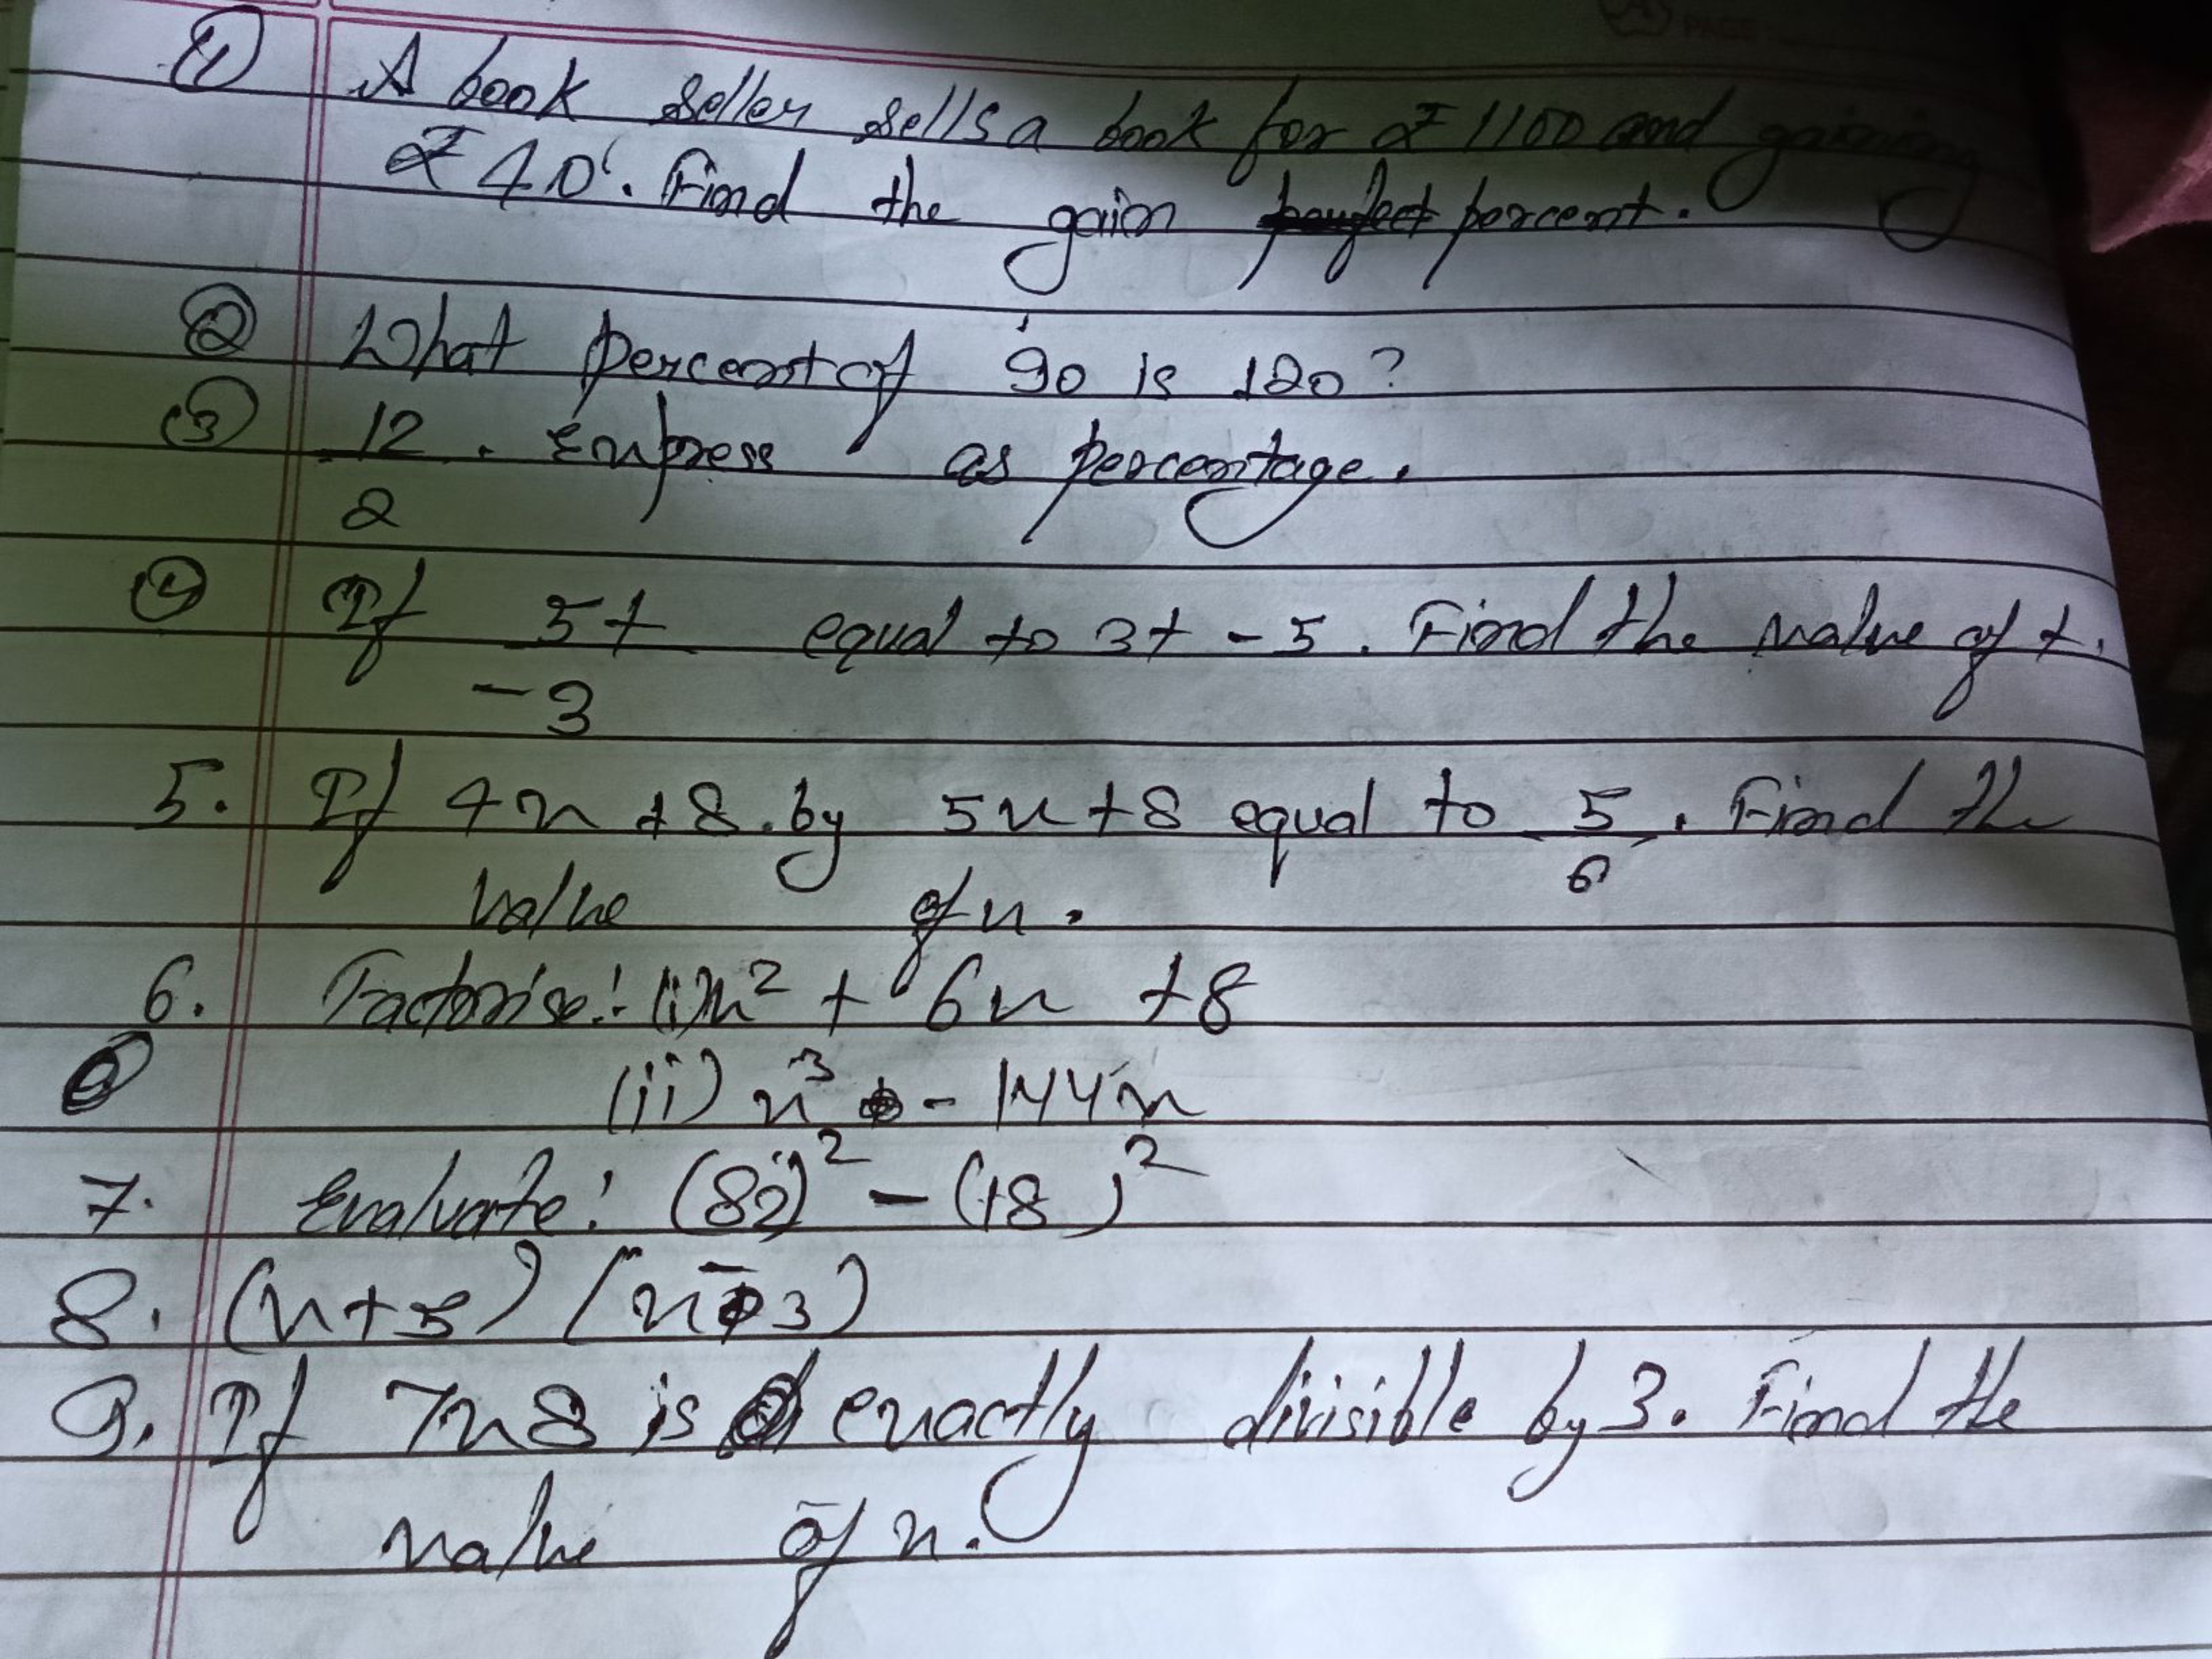 ① A book seller sells a book for ₹ 1100 and gaining
₹ 40. Find the gain percent.
② What percent of 90 is 120?
③ 12/2 . Express as percentage.
④ If 5t/-3 equal to 3t - 5. Find the value of t.
5. If 4x + 8 by 5x + 8 equal to 5/6. Find the
value of x.
6. Factorise:- (i) x² + 6x + 8
(ii) x³ - 144x
7. Evaluate: (82)² - (18)²
8. (x+5) (x-3)
9. If 7x8 is exactly divisible by 3. Find the
value of x.